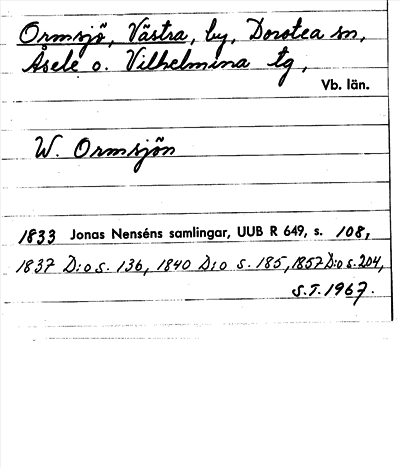 Ormsjö, Västra, by, Dorotea sn,
Åsele o. Vilhelmina tg,
Vb. län.
W. Ormsjön
1833 Jonas Nenséns samlingar, UUB R 649, s. 108,
1837 D:o s. 136, 1840 D:o s. 185, 1857 D:o s. 204,
S.T. 1967.